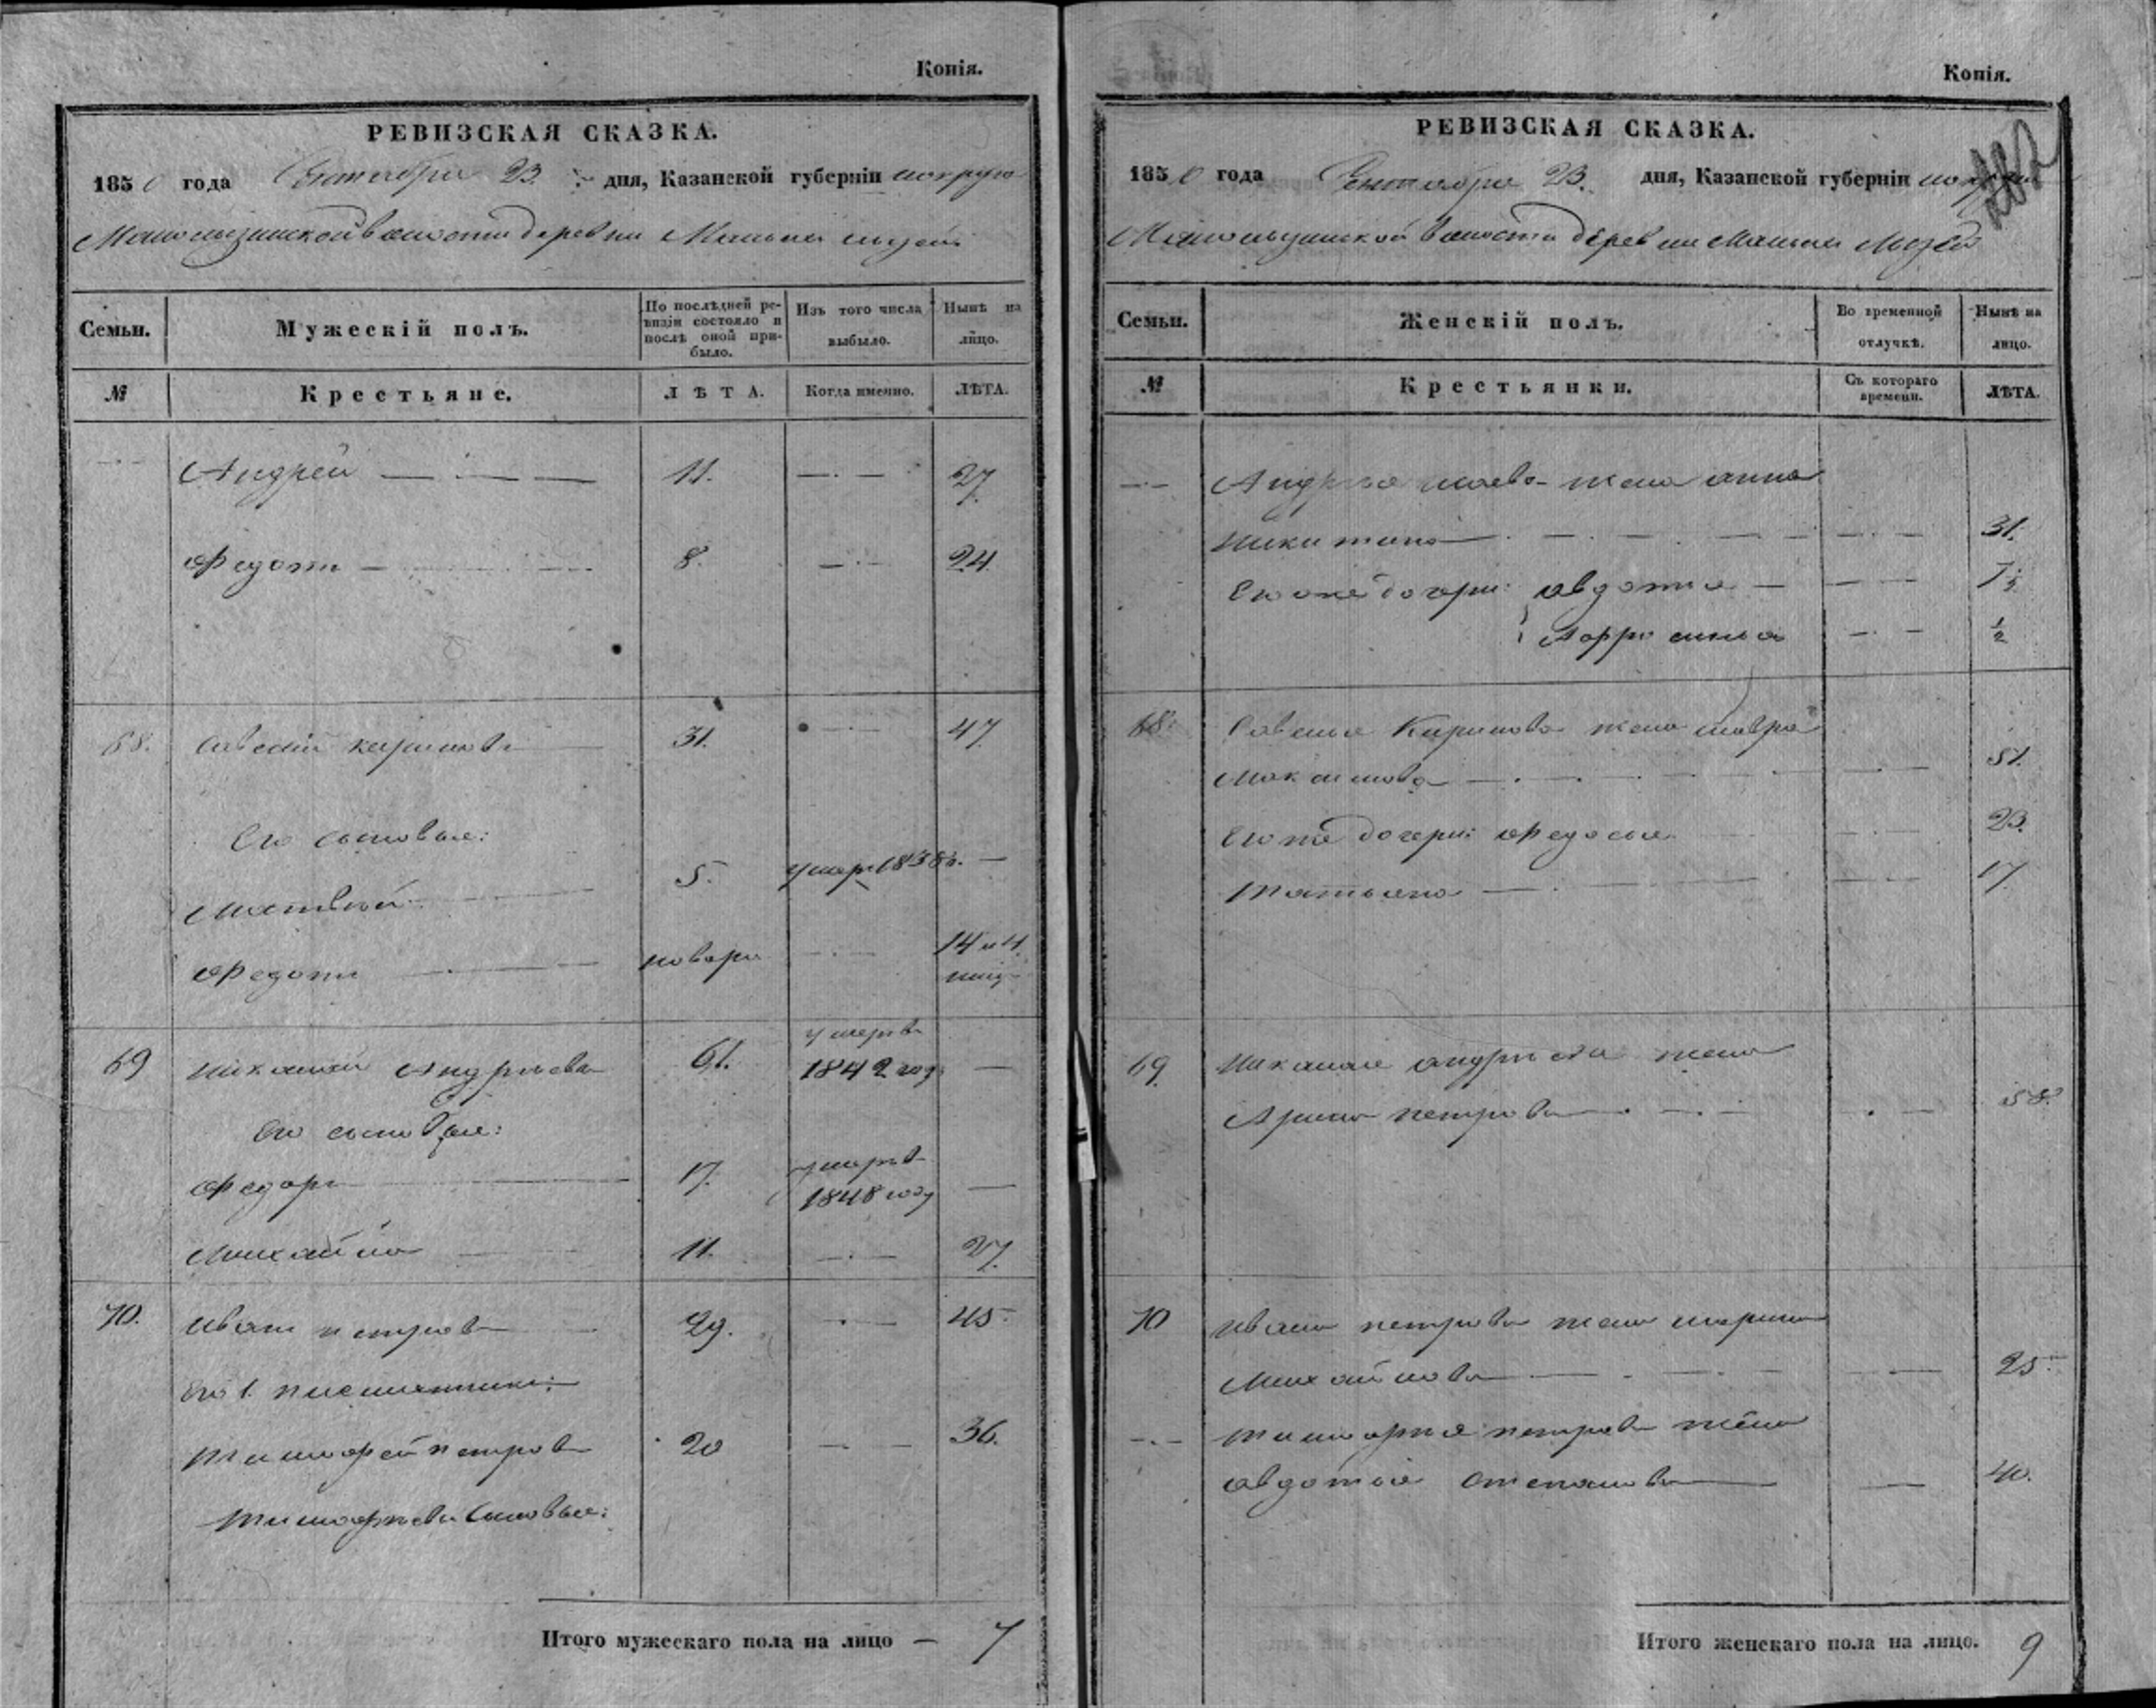 Копія.
РЕВИЗСКАЯ СКАЗКА.
1850 года Сентября 23 дня, Казанской губерніи
волости деревни Малыхъ
Семьи. Мужескій полъ. По послѣдней ревизіи состояло и послѣ оной прибыло. Изъ того числа выбыло. Нынѣ на лицо.
№ Крестьяне. ЛѢТА. Когда именно. ЛѢТА.
Андрей 11. 27.
Федотъ 8. 24
68. Савелій Кириловъ 31. 47.
Его сыновья:
Матвей 5. умеръ 1838 г.
Федотъ новорж 14
69 Николай Андрѣевъ 61. умеръ въ
1842 году
Его сыновья:
Федоръ 17. умеръ въ
1848 году
Михайла 11. 27.
70. Иванъ Петровъ 29. 45
Его 1. племянникъ:
Тимофей Петровъ 20 36.
Тимофѣева сыновья:
Итого мужескаго пола на лицо — 7
Копія.
РЕВИЗСКАЯ СКАЗКА.
1850 года Сентября 23. дня, Казанской губерніи
волости деревни Малыхъ
Семьи. Женскій полъ. Во временной отлучкѣ. Нынѣ на лицо.
№ Крестьянки. Съ котораго времени. ЛѢТА.
Андрея жена Анна
Никитина 31.
Его же дочери: Авдотья
½
68. Савелья Кирилова жена Мавра
Максимова 51.
Его же дочери: Федосья 23.
Татьяна 17.
69. Николая Андрѣева жена
Арина Петрова 58.
70 Ивана Петрова жена Марина
Михайлова 25.
Тимофея Петрова жена
Авдотья Степанова 40.
Итого женскаго пола на лицо. 9